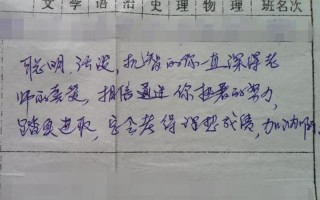 文 学 语 治 史 理 物 理 班名次
聪明、活泼、机智的你一直深得老
师的喜爱，相信通过你执着的努力，
踏实进取，定会考得理想成绩，加油啊